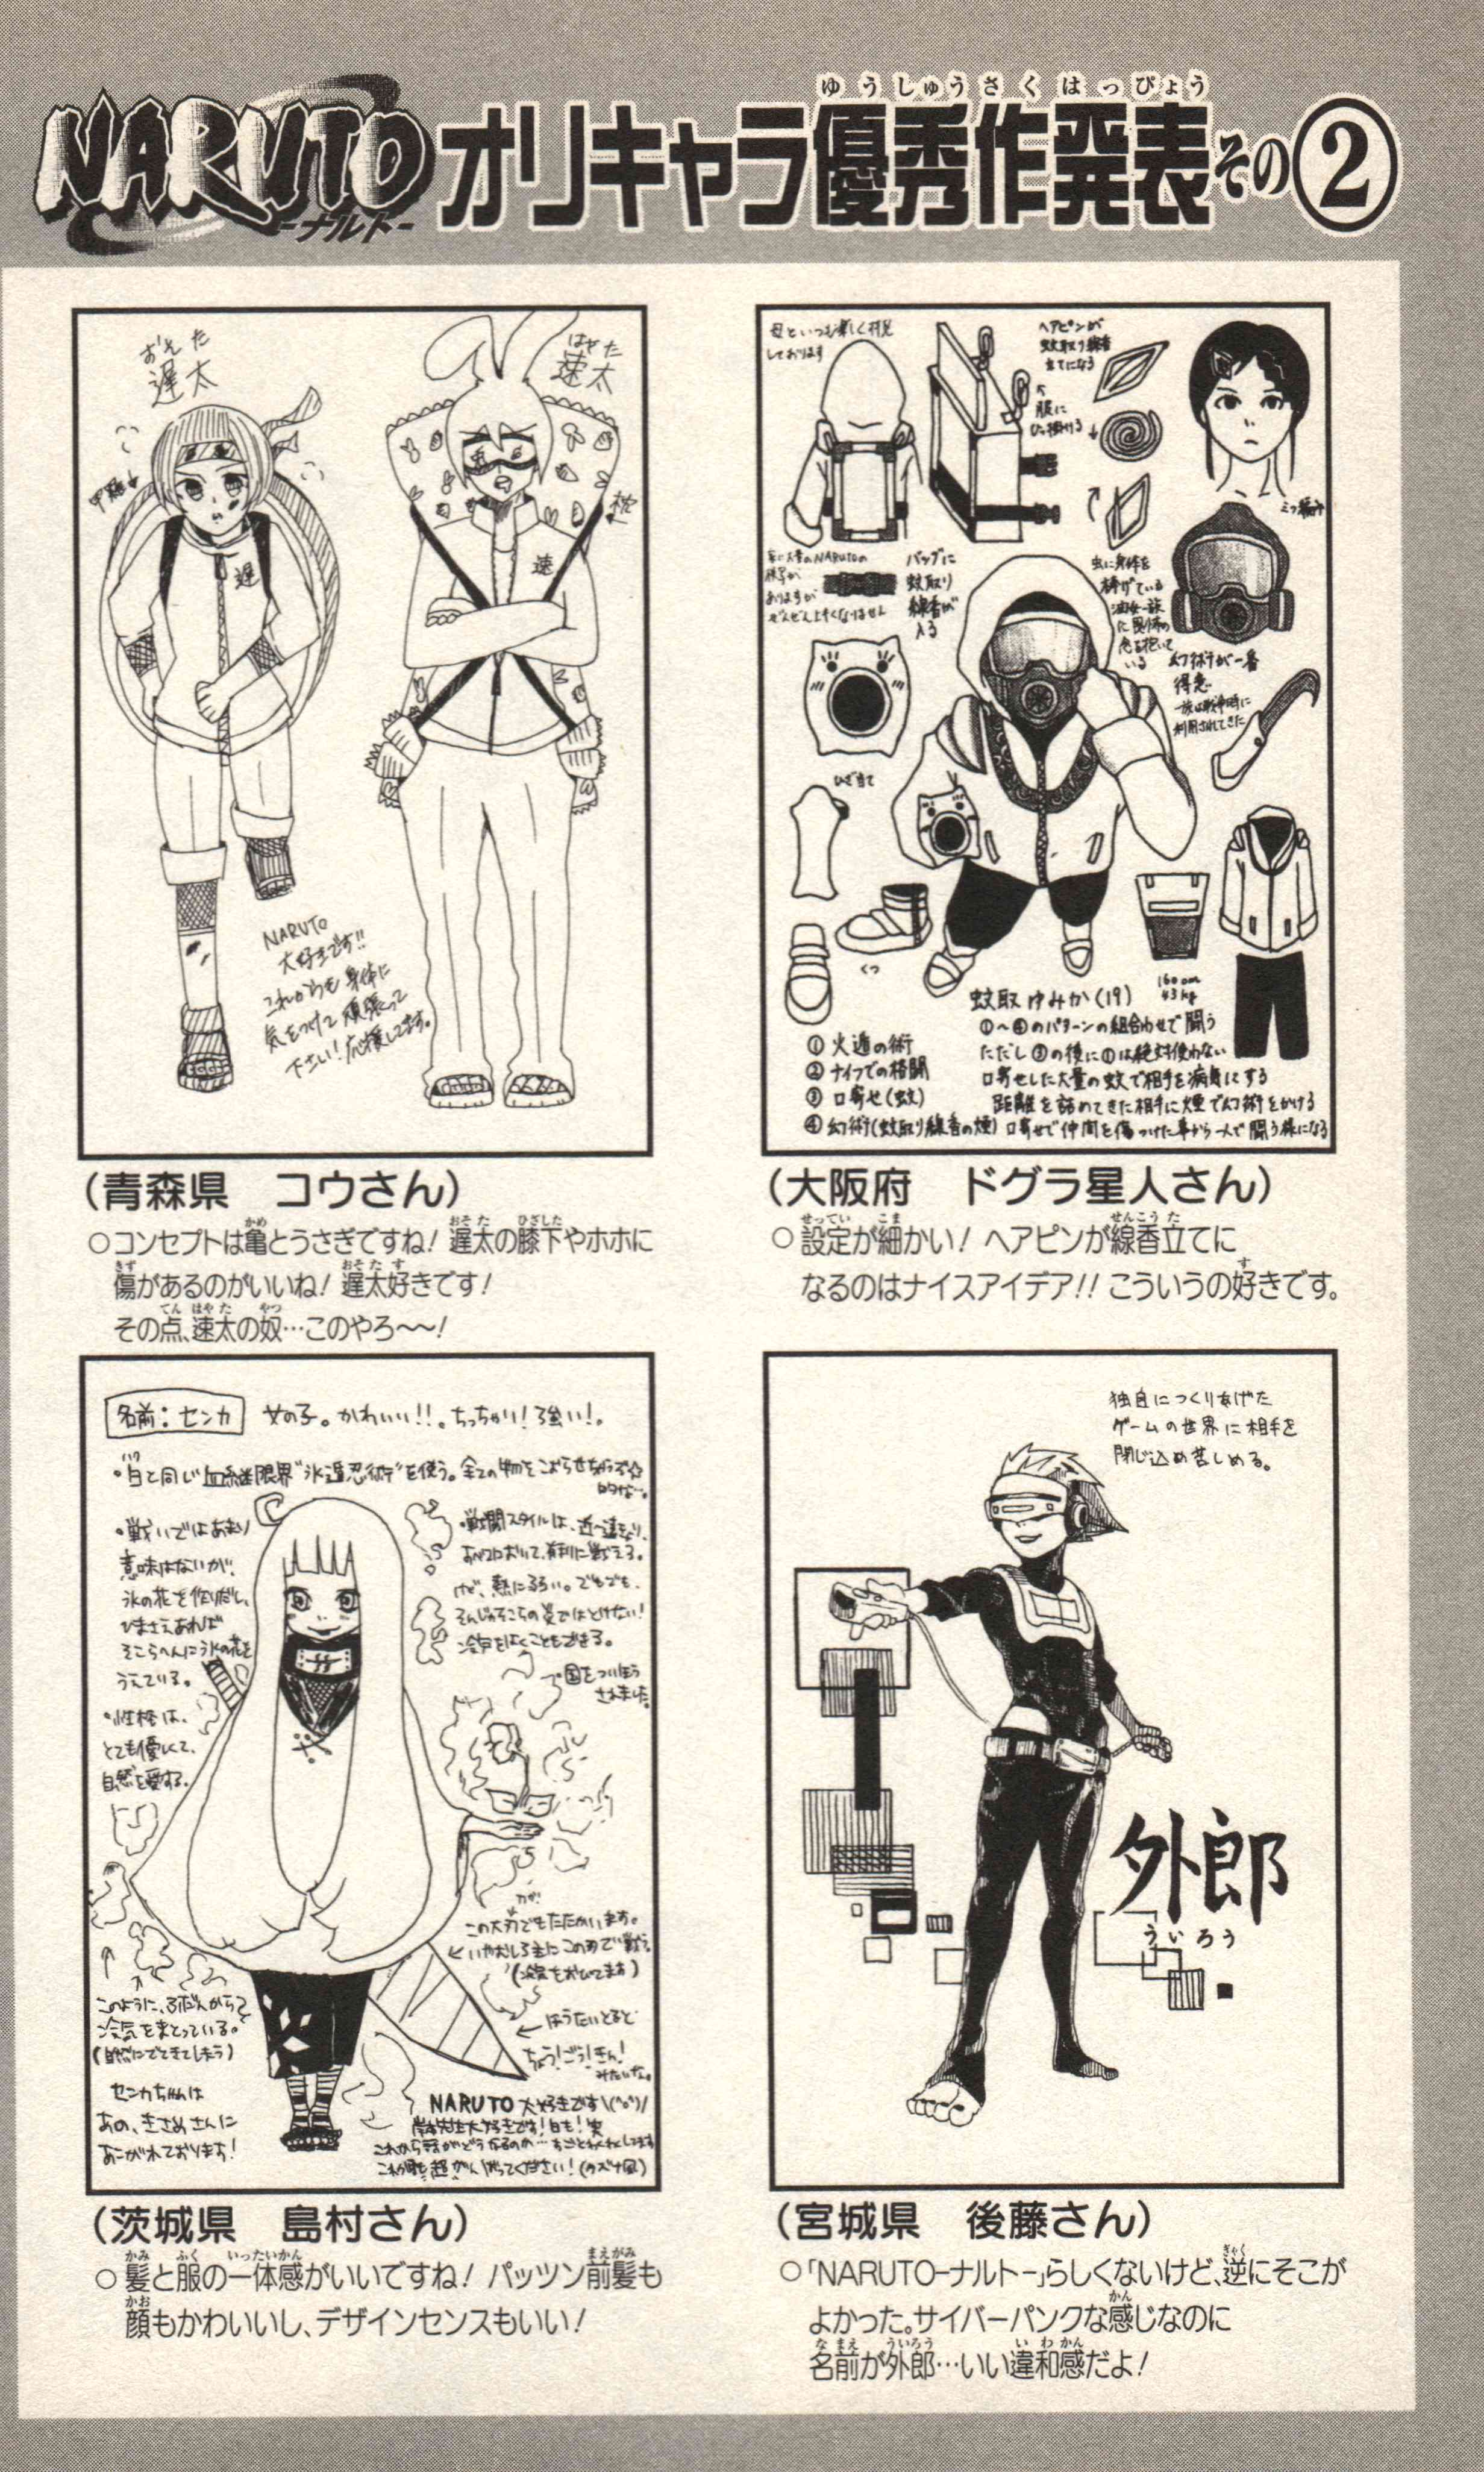 ゆうしゅうさくはっぴょう
NARUTO
-ナルト-
オリキャラ優秀作発表その②
おそた
遅太
はやた
速太
遅
速
枕
NARUTO
大好きです!!
これからも身体に
気をつけて頑張って
下さい!応援してます。
(青森県 コウさん)
○コンセプトは亀とうさぎですね! 遅太の膝下やホホに
傷があるのがいいね! 遅太好きです!
その点、速太の奴…このやろ〜〜!
母といつも楽しく拝見
しております
ヘアピンが
蚊取り線香
立てになる
服に
ひっ掛ける
三つ編み
家に大量のNARUTOの
模写が
ありますが
ぜんぜん上手くなりません
バッグに
蚊取り
線香が
入る
虫に身体を
捧げている
油女一族
に
いる
幻術が一番
得意
一族は戦争時に
利用されてきた
ひざ当て
くつ
蚊取ゆみか(19)
160cm
43kg
①火遁の術
②ナイフでの格闘
③口寄せ(蚊)
④幻術(蚊取り線香の煙)
①〜④のパターンの組合わせで闘う
ただし③の後に①は絶対使わない
口寄せした大量の蚊で相手を病気にする
距離を詰めてきた相手に煙で幻術をかける
口寄せで仲間を傷つけた事から一人で闘う様になる
(大阪府 ドグラ星人さん)
○設定が細かい! ヘアピンが線香立てに
なるのはナイスアイデア!! こういうの好きです。
名前:センカ 女の子。かわいい!!。ちっちゃい!強い!。
・白と同じ血継限界"氷遁忍術"を使う。全ての物をこおらせちゃうぞ☆
的な…。
・戦いではあまり
意味はないが、
氷の花を作りだし、
ひまさえあれば
そこらへんに氷の花を
うえている。
・性格は、
とても優しくて、
自然を愛する。
・戦闘スタイルは、近・遠
において、有利に戦える。
けど、熱に弱い。でもでも、
そんじょそこらの炎ではとけない!
冷気をはくこともできる。
・国をついほう
されました。
この大刀でもたたかいます。
いやむしろ主にこの刀で戦う
(冷気をおびてます)
ほうたいとると
ちょう!ごう!きん!
みたいな。
このように、ふだんからも
冷気をまとっている。
(自然にでてきてしまう)
センカちゃんは
あの、きさめさんに
あこがれております!
NARUTO大好きです\(^o^)/
岸本先生大好きです!白も!笑
これから話がどうなるのか…すごくわくわくしてます
これからも超がんばってください!(カズナ風)
(茨城県 島村さん)
○髪と服の一体感がいいですね! パッツン前髪も
顔もかわいいし、デザインセンスもいい!
独自につくりあげた
ゲームの世界に相手を
閉じ込め苦しめる。
外郎
ういろう
(宮城県 後藤さん)
○「NARUTO-ナルト-」らしくないけど、逆にそこが
よかった。サイバーパンクな感じなのに
名前が外郎…いい違和感だよ!